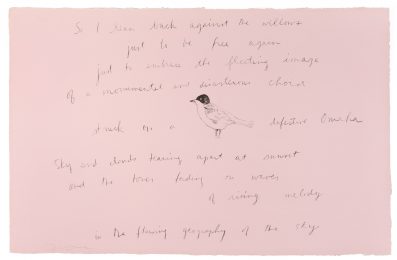 So I lean back against the willows
just to be free again
just to embrace the fleeting image
of a monumental and disastrous chord
struck on a defective Omaha
Sky and clouds tearing apart at sunset
and the town fading on waves
of rising melody
in the flowing geography of the sky